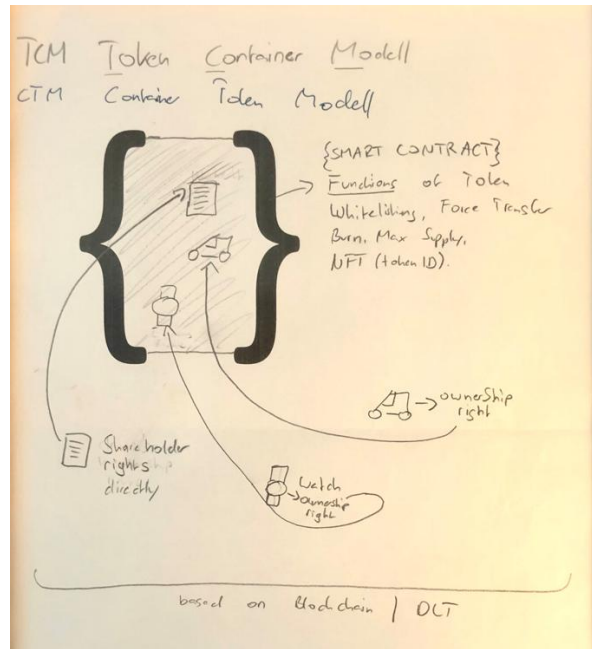 TCM Token Container Modell
CTM Container Token Modell
{SMART CONTRACT}
Functions of Token
Whitelisting, Force Transfer
Burn, Max Supply,
NFT (token ID).
→ ownership
right
Shareholder
rights
directly
Watch
→ ownership
right
based on Blockchain | DLT